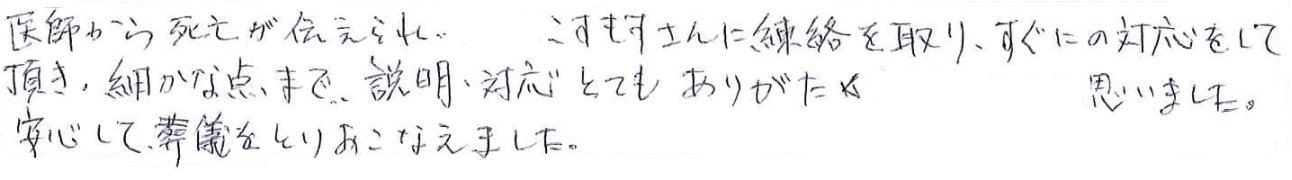 医師から死亡が伝えられ、 こすもすさんに練絡を取り、すぐにの対応をして
頂き、細かな点まで、説明、対応とてもありがたく 思いました。
安心して、葬儀をとりおこなえました。